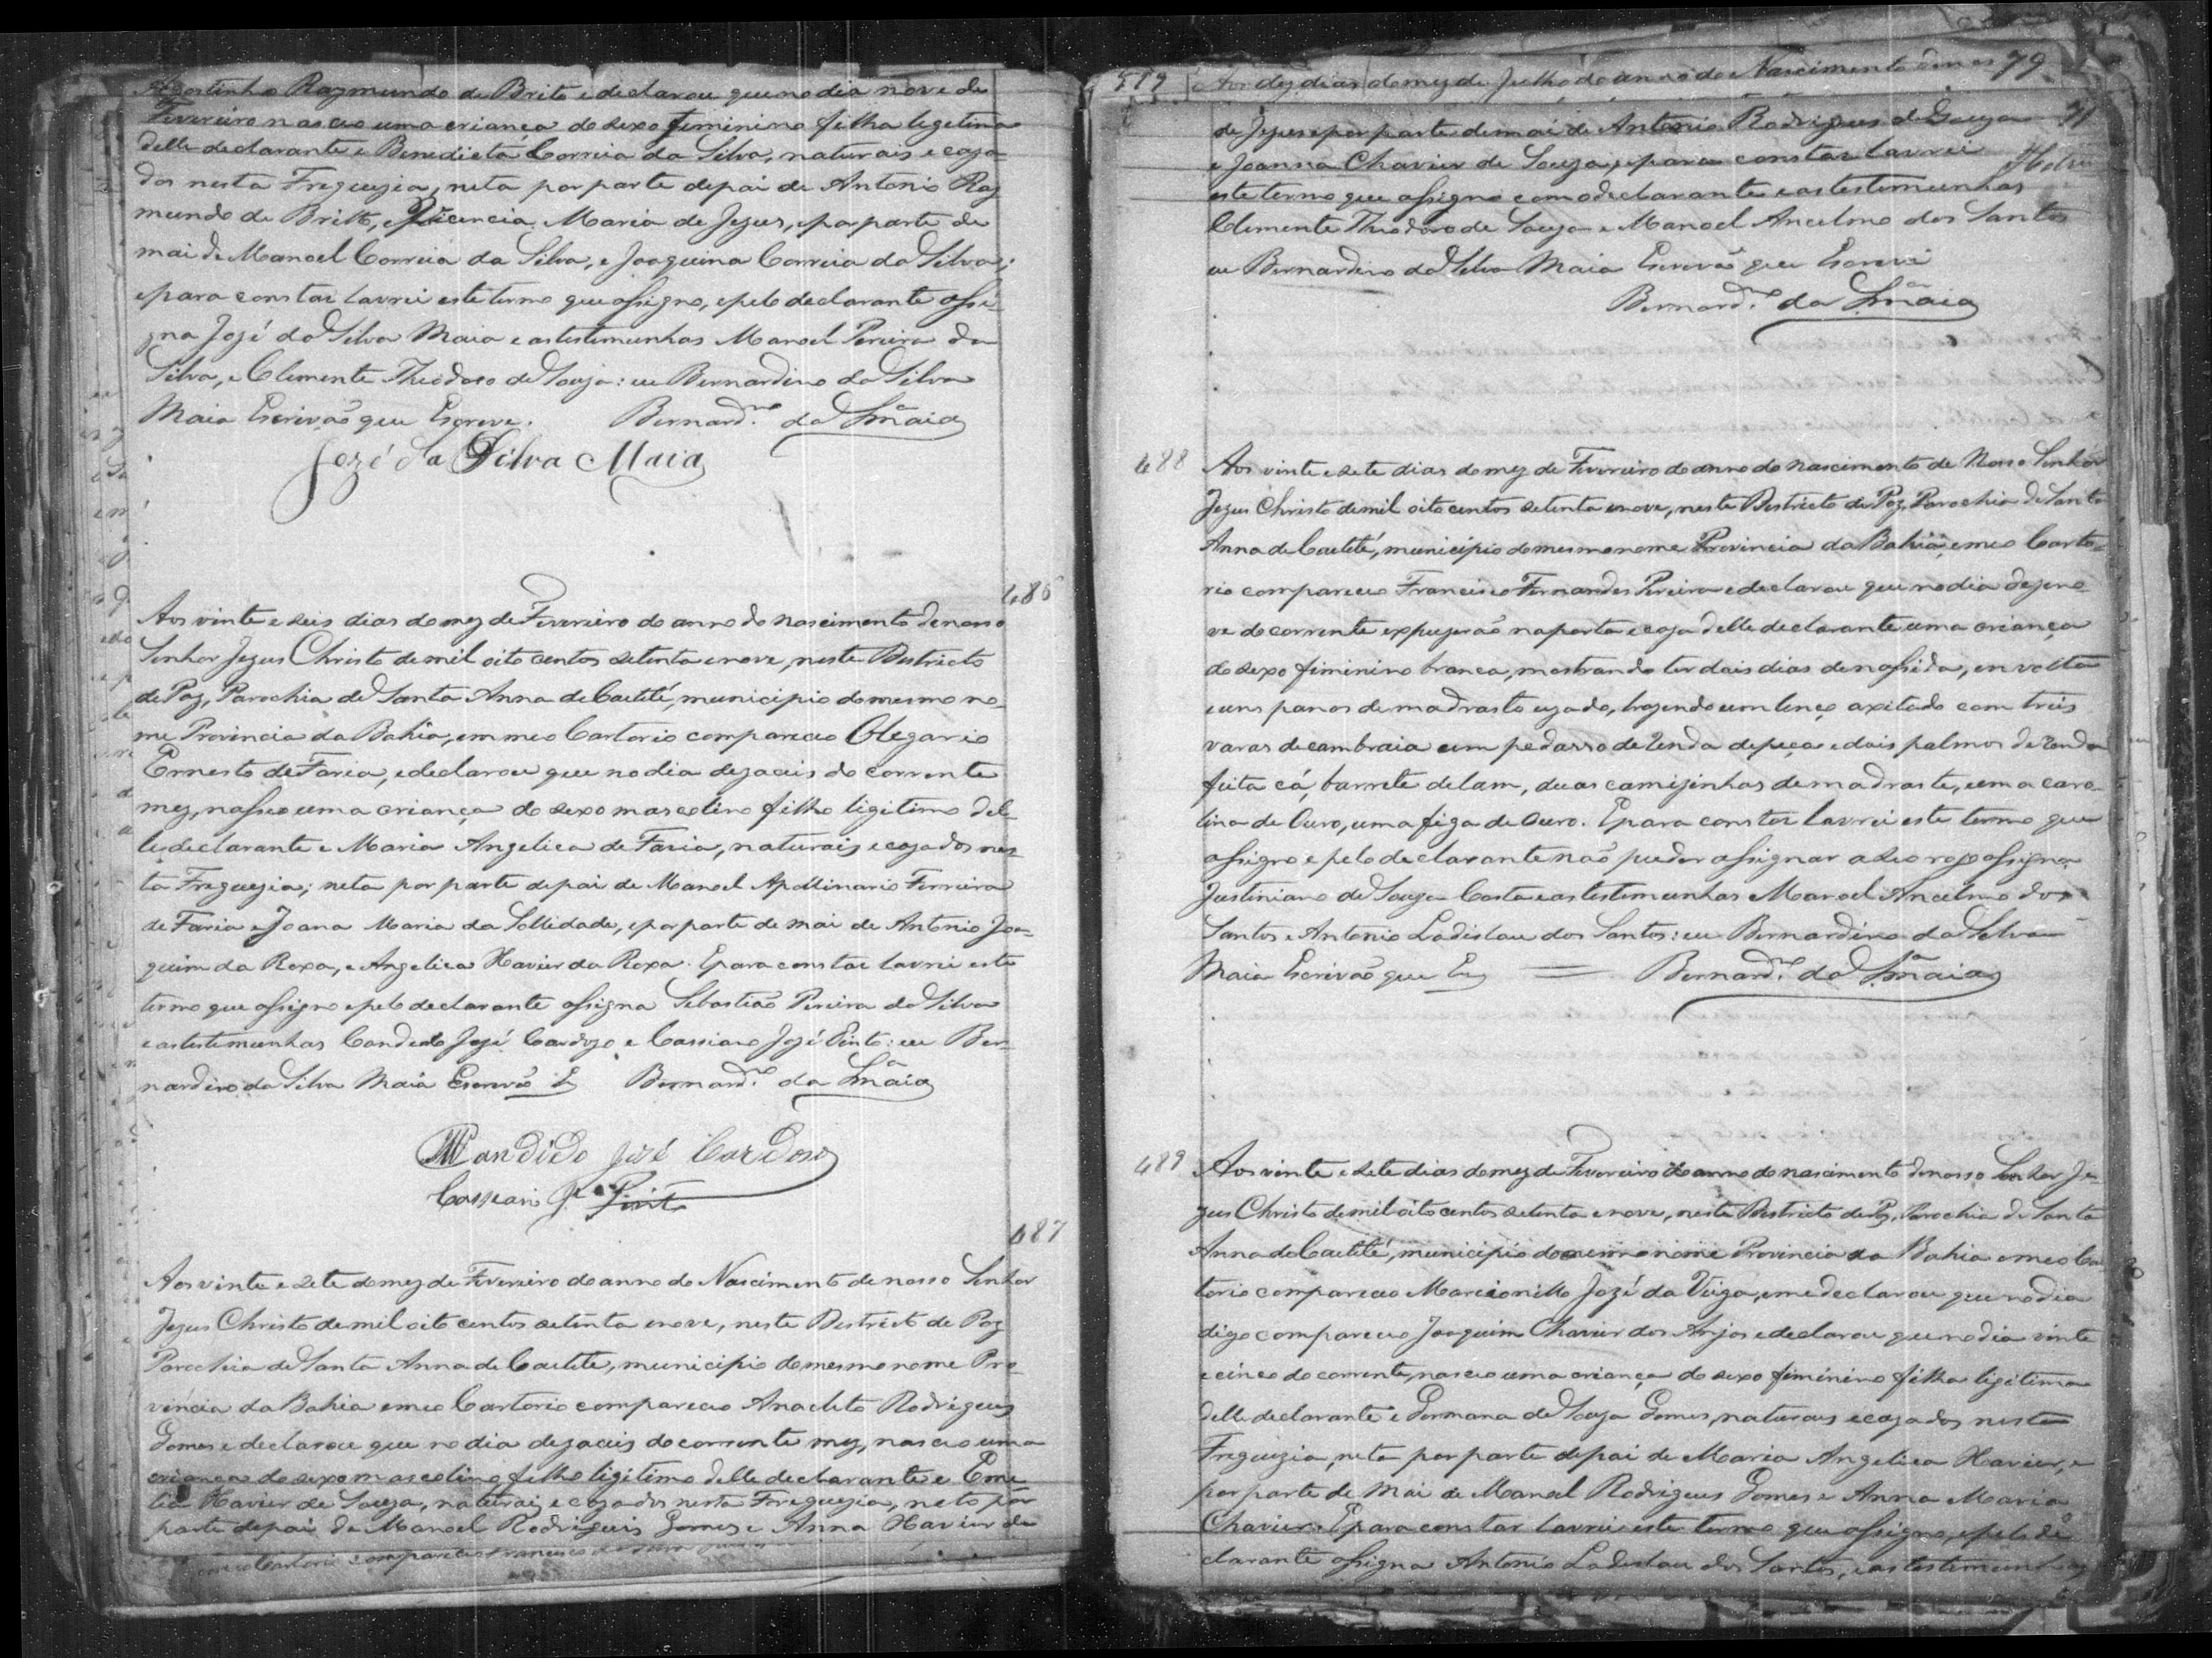 Agostinho Raymundo de Brito e declarou que no dia nove de
Fevereiro nasceo uma criança do sexo feminino filha legitima
delle declarante e Benedicta Correia da Silva, naturais e caza-
dos nesta Freguezia, neta por parte de pai de Antonio Ray
mundo de Britto, e Vicencia Maria de Jezus, e pa parte de
mai de Manoel Correia da Silva, e Joaquina Correia da Silva;
e para constar lavrei este termo que assigno, e pelo declarante assi-
gna Jozé da Silva Maia e as testemunhas Manoel Pereira da
Silva, e Clemente Theodoro de Souza: eu Bernardino da Silva
Maia Escrivão que Escrevi. Bernard.no da S.a Maia
Jozé da Silva Maia
486
Aos vinte e seis dias do mez de Fevereiro do anno do nascimento de nosso
Senhor Jezus Christo de mil oito centos setenta e nove, neste Destricto
de Paz, Parochia de Santa Anna de Caetité, municipio do mesmo no-
me Provincia da Bahia, em meo Cartorio compareceo Olegario
Ernesto de Faria, e declarou que no dia dezaceis do corrente
mez, nasseo uma criança do sexo mascolino filho ligitimo del-
le declarante e Maria Angelica de Faria, naturais e cazados nes-
ta Freguezia; neta por parte de pai de Manoel Apollinario Ferreira
de Faria e Joana Maria da Sollidade, e por parte de mai de Antonio Joa-
quim da Roxa, e Angelica Xavier da Roxa. E para constar lavrei este
termo que assigno e pelo declarante assigna Sebastião Pereira da Silva
e as testemunhas Candido José Cardozo e Cassiano José Pinto: eu Ber-
nardino da Silva Maia Escrevão E Bernard.no da S.a Maia
Candido José Cardoso
Casseano Je Pinto
487
Aos vinte e sete do mez de Fevereiro do anno do Nascimento de nosso Senhor
Jezus Christo de mil oito centos setenta e nove, neste Destricto de Paz
Parochia de Santa Anna de Caetete, municipio do mesmo nome Pro-
vincia da Bahia em meo Cartorio compareceo Anacleto Rodrigues
Gomes e declarou que no dia dezaceis do corrente mez, nasceo uma
criança do sexo mascolino filho ligitimo delle declarante e Eme-
lia Xavier de Souza, naturais e cazados nesta Freguezia, neto por
parte de pai de Manoel Rodrigues Gomes e Anna Xavier de
em meo Cartorio compareceo Francisco
519 Aos dez dias do mez de Julho do anno do Nascimento 79
de Jezus e por parte de mai de Antonio Rodrigues de Souza 71
e Joanna Chavier de Souza, e para constar lavrei
este termo que assigno com o declarante e as testemunhas
Clemente Theodoro de Souza e Manoel Ancelmo dos Santos
eu Bernardino da Silva Maia Escrevão que Escrevi
Bernard.no da S.a Maia
488 Aos vinte e sete dias do mez de Fevereiro do anno do nascimento de Nosso Senhor
Jezus Christo de mil oito centos setenta e nove, neste Destricto de Paz, Parochia de Santa
Anna de Caetité, municipio do mesmo nome Provincia da Bahia em meo Carto-
rio compareceo Francisco Fernandes Pereira e declarou que no dia dezeno-
ve do corrente expuzerão na porta e caza delle declarante uma criança
do sexo feminino branca, mostrando ter dois dias de nassida, envolta
e uns panos de madrasto uzado, trazendo um lenço axitado com treis
varas de cambraia um pedasso de renda de peça e dois palmos de renda
feita cá, barrete de lam, duas camizinhas de madraste, uma caro-
lina de Ouro, uma figa de Ouro. E para constar lavrei este termo que
assigno e pelo declarante não puder assignar a seo rogo assigna
Justiniano de Souza Costa e as testemunhas Manoel Ancelmo dos
Santos e Antonio Ladislau dos Santos: eu Bernardino da Silva
Maia Escrivão que E Bernard.no da S.a Maia
489 Aos vinte e sete dias do mez de Fevereiro do anno do nascimento de nosso Senhor Je-
zus Christo de mil oito centos setenta e nove, neste Destricto de Paz, Parochia de Santa
Anna de Caetité, municipio do mesmo nome Provincia da Bahia em meo Car-
torio compareceo Marcionillo Jozé da Veiga, e me declarou que no dia
digo compareceo Joaquim Chavier dos Anjos e declarou que no dia vinte
e cinco do corrente, nasceo uma criança do sexo feminino filha ligitima
delle declarante e Germana de Souza Gomes, naturais e cazados nesta
Freguezia, neta por parte de pai de Maria Angelica Xavier, e
por parte de Mai de Manoel Rodrigues Gomes e Anna Maria
Chavier. E para constar lavrei este termo que assigno, e pelo de-
clarante assigna Antonio Ladislau dos Santos, e as testemunhas